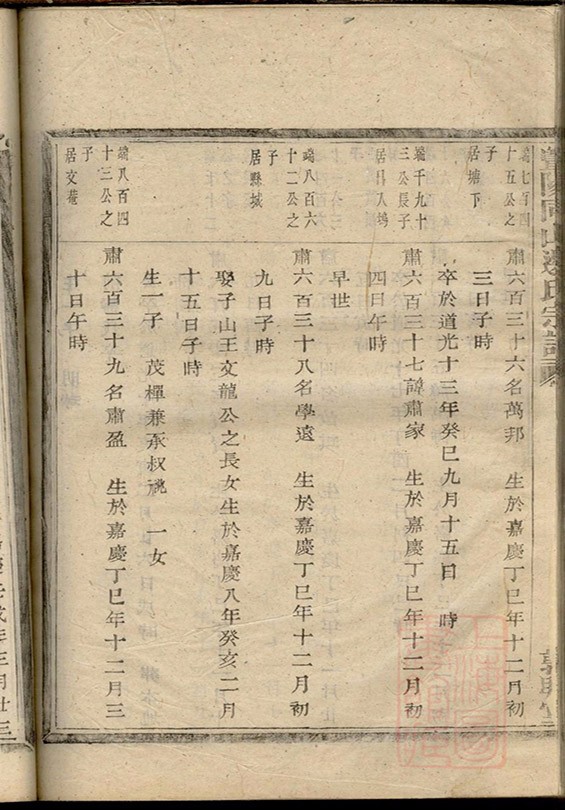 端七百四
十五公之
子
居塘下
肅六百三十六名萬邦　生於嘉慶丁巳年十二月初
三日子時
卒於道光十三年癸巳九月十五日　時
端千九十
三公長子
居昌人塢
肅六百三十七諱肅家　生於嘉慶丁巳年十二月初
四日午時
早世
端八百六
十二公之
子
居縣城
肅六百三十八名學遠　生於嘉慶丁巳年十二月初
九日子時
娶子山王文龍公之長女生於嘉慶八年癸亥二月
十五日子時
生一子　茂樿兼承叔祧　一女
端八百四
十三公之
子
居文菴
肅六百三十九名肅盈　生於嘉慶丁巳年十二月三
十日午時
年三月廿三